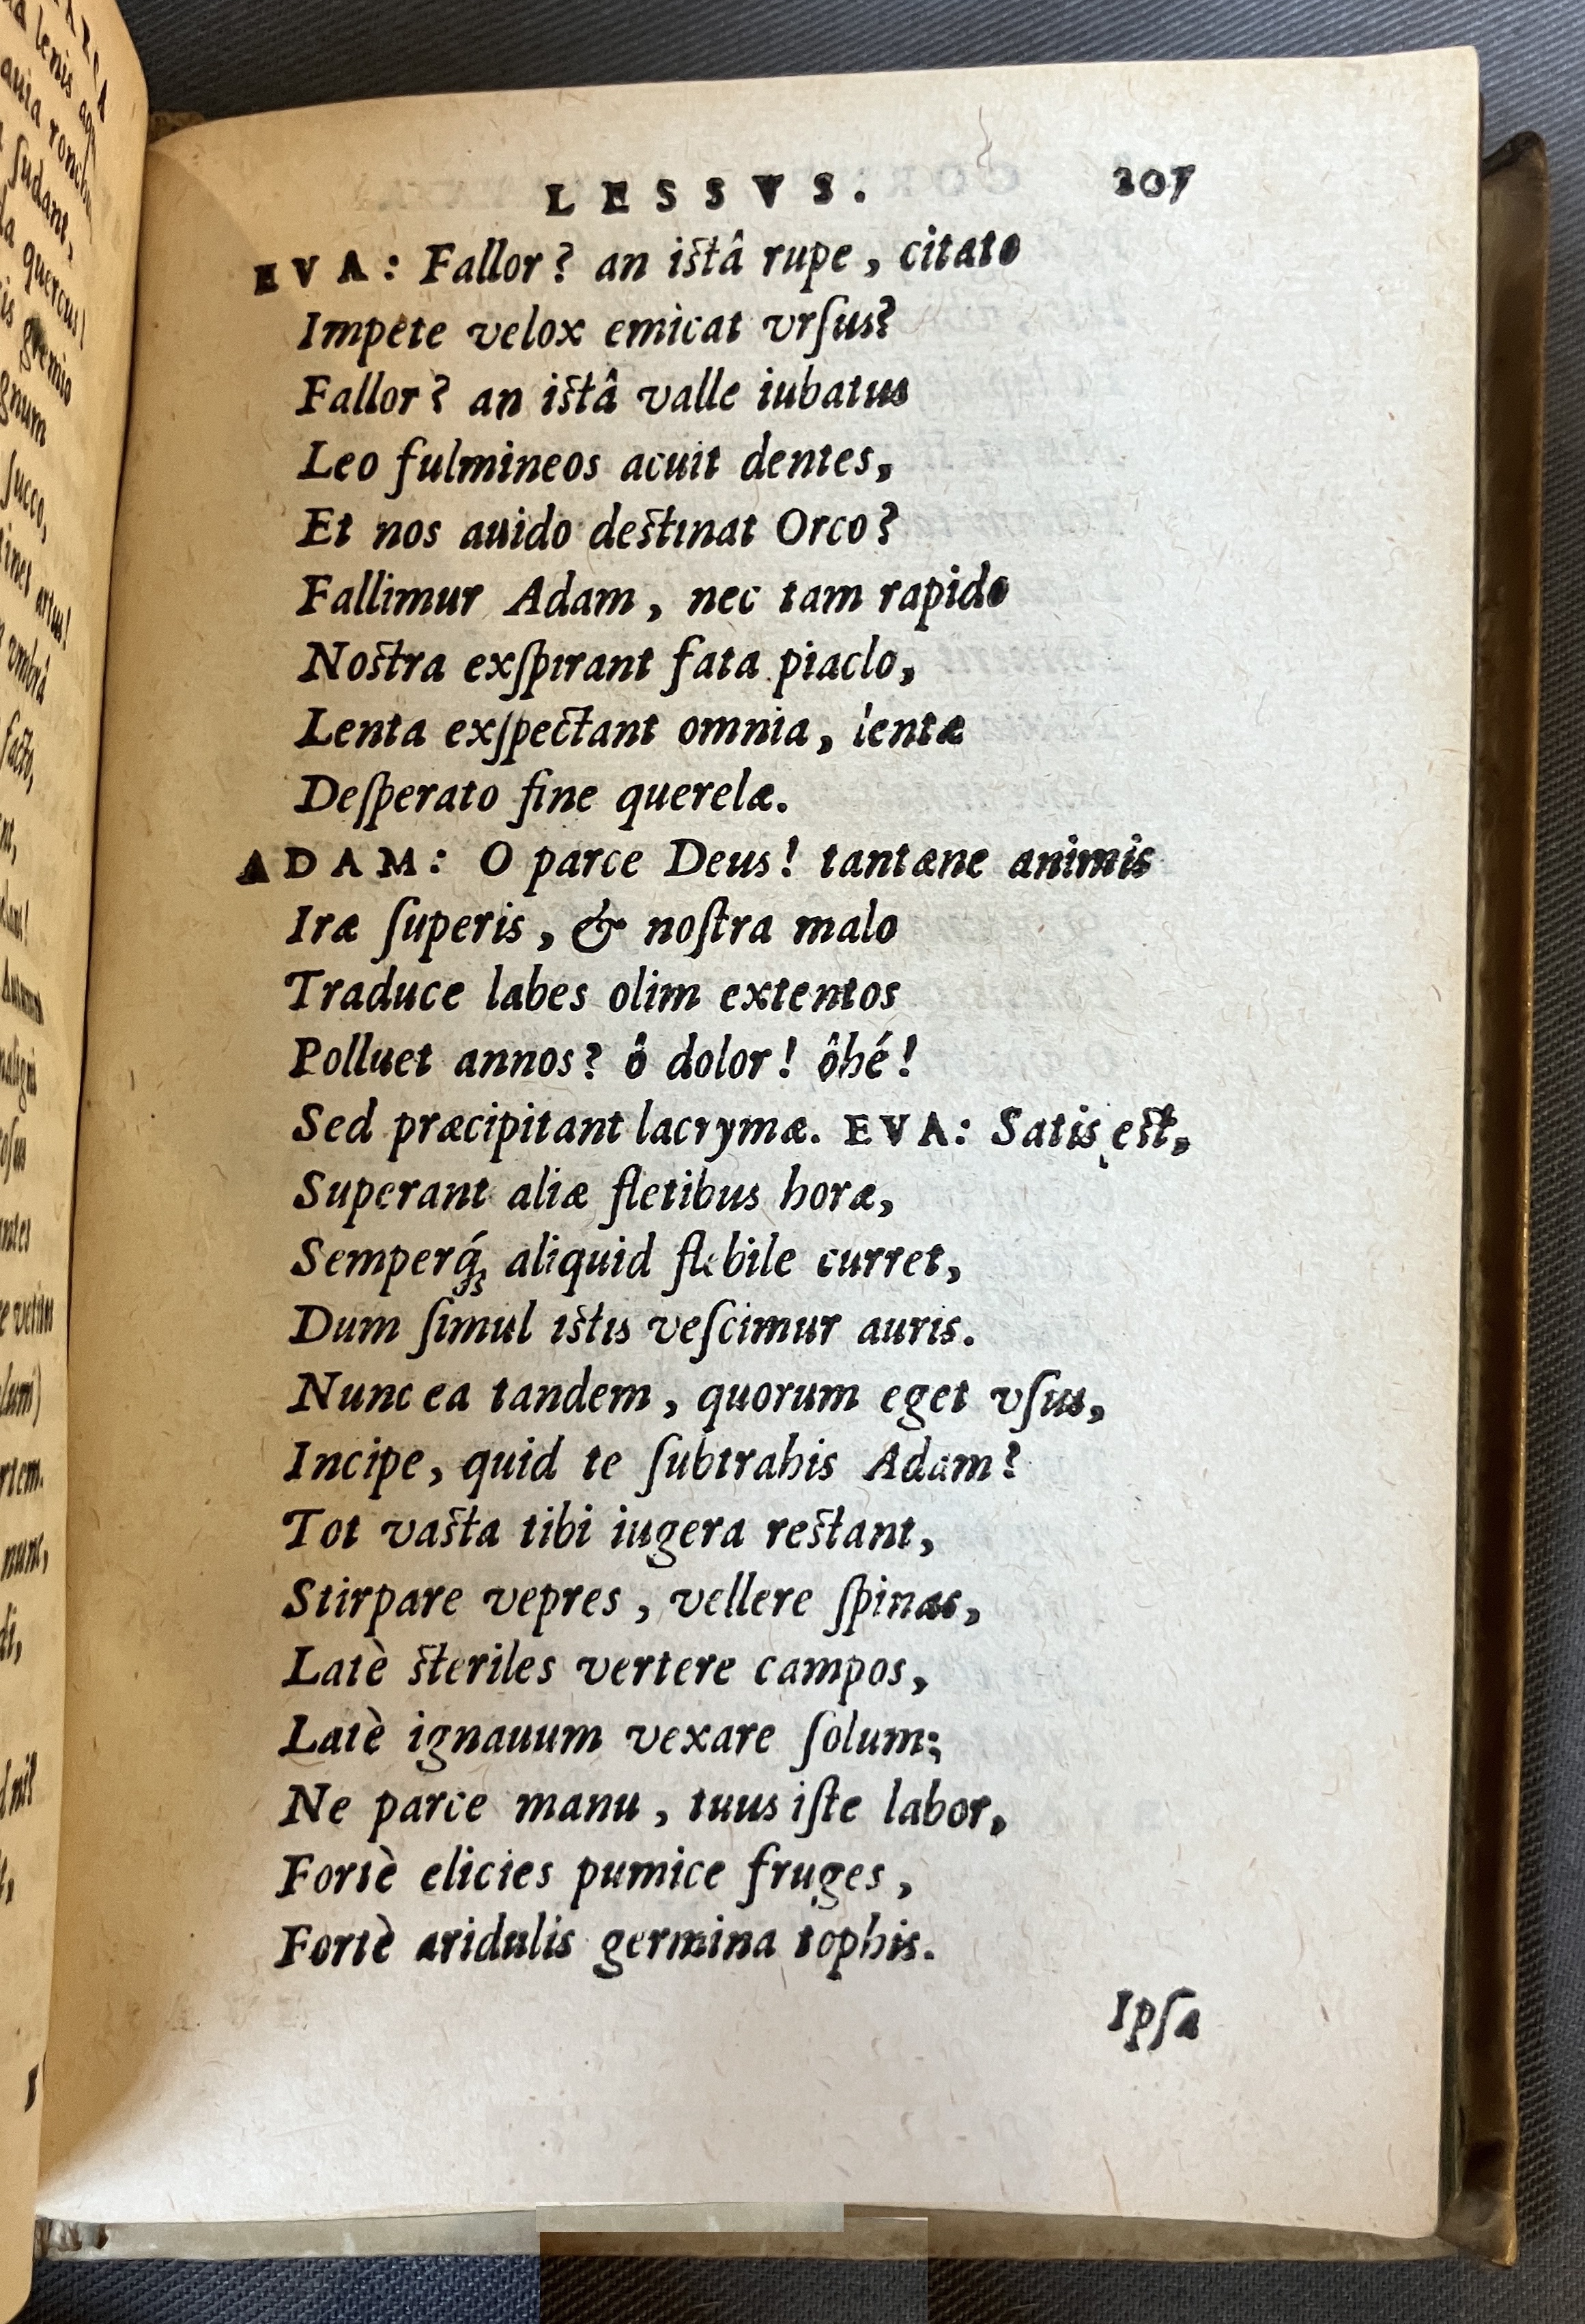 LESSVS. 207
EVA: Fallor? an iſtâ rupe, citato
Impete velox emicat vrſus?
Fallor? an iſtâ valle iubatus
Leo fulmineos acuit dentes,
Et nos auido deſtinat Orco?
Fallimur Adam, nec tam rapido
Noſtra exſpirant fata piaclo,
Lenta exſpectant omnia, lentæ
Deſperato fine querelæ.
ADAM: O parce Deus! tantæne animis
Iræ ſuperis, & noſtra malo
Traduce labes olim extentos
Polluet annos? ô dolor! ôhé!
Sed præcipitant lacrymæ. EVA: Satis eſt,
Superant aliæ fletibus horæ,
Semperq́ꝫ aliquid flebile curret,
Dum ſimul iſtis veſcimur auris.
Nunc ea tandem, quorum eget vſus,
Incipe, quid te ſubtrahis Adam?
Tot vaſta tibi iugera reſtant,
Stirpare vepres, vellere ſpinas,
Latè ſteriles vertere campos,
Latè ignauum vexare ſolum;
Ne parce manu, tuus iſte labor,
Fortè elicies pumice fruges,
Fortè aridulis germina tophis.
Ipſa